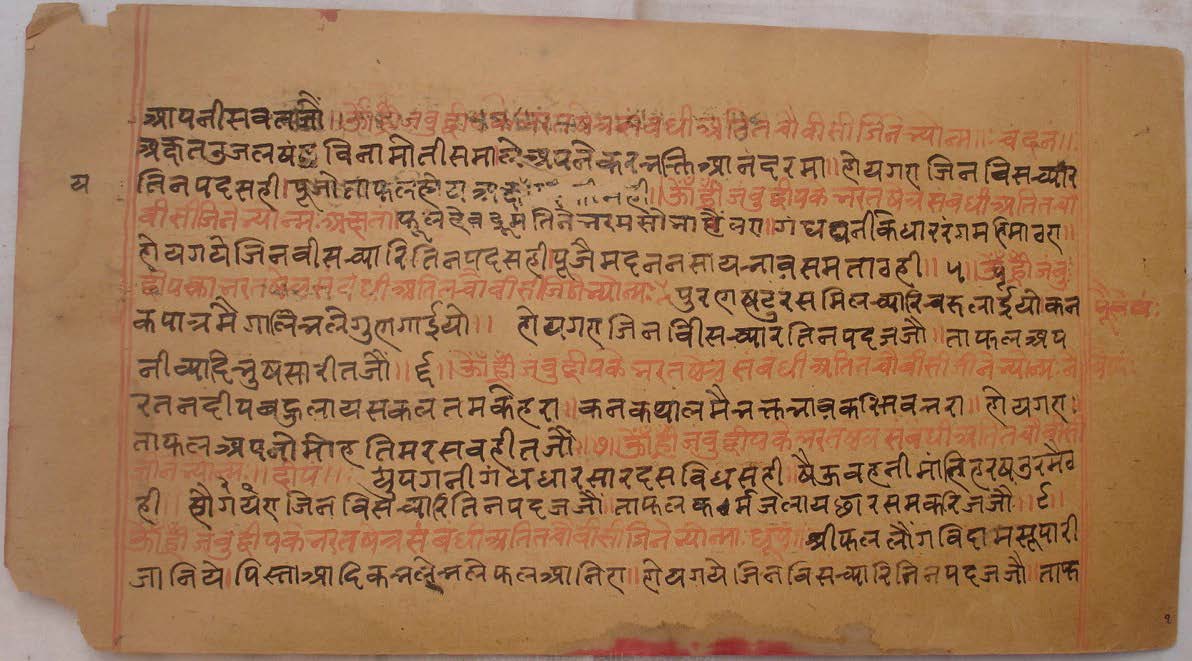 आपनी सब लजौं॥ ॐ ह्रीं जंबुद्वीप संबंधी अतित चौवीसी जिनेभ्योन्मः॥ चंदनं॥
अक्षत उजल षंड विना मोती समा॥ करभक्ति आनंद रमा॥ होय गए जिन विस च्यार
य
तिन पद सही॥ पूजो ताफल होय ॥ ॐ ह्रीं जंबुद्वीपके भरतषेत्र संबंधी अतित चौ
वीसी जिनेभ्योन्मः अक्षतां॥ फूल भरम सोभा धैवरा॥ गंध धनीकिधार रंग महिमा वरा॥
होय गये जिन वीस च्यारि तिन पद सही॥ पूजै मदन नसाय भाव समता वही॥५॥ ॐ ह्रीं जंबु
द्वीपका भरतषेत्र संबंधी अतित चौवीसी जिनेभ्योन्मः पुरण षटुरस मिल च्यारि चरु लाईयो कन
कपात्रमै गालि भले गुण गाईयो॥ होय गए जिन विस च्यार तिन पद जजौ॥ ताफल अप
नी व्यादि भुष सारी तजौं॥६॥ ॐ ह्रीं जंबुद्वीपके भरतषेत्र संबंधी अतित चौवीसी जीनेभ्योन्म
रतन दीप बहु लाय सकल तमके हरा॥ कनक थालमै भक्त भाव करि सब भरा॥ होय गए
ताफल अपनो मोह तिमर सब ही तजौं॥७॥ ॐ ह्रीं जंबुद्वीपके भरतषेत्र संबंधी अतित चौवीसी
जीनेभ्योन्मः॥ दीपं॥ धुप गनी गंध धार सार दसविध सही॥ षैऊ वहनी मांहि हरष उरमै ठ
ही॥ होय गए जिन विस च्यारि तिन पद जजौं॥ ताफल कर्म जलाय छार समकरि जजौं॥८॥
ॐ ह्रीं जंबुद्वीपके भरतषेत्र संबंधी अतित चौवीसी जिनेभ्योन्मः॥ धूपं॥ श्रीफल लौंग विदाम सूपारी
जानिये॥ पिस्ता आदिक भले भले फल आनिए॥ होय गये जिन विस च्यारि तिन पद जजौं॥ ताफ
१